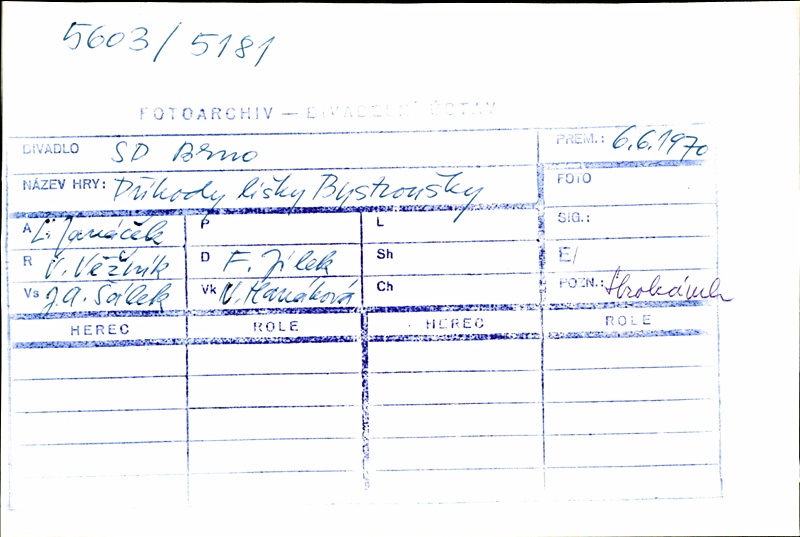 5603/5181
FOTOARCHIV — DIVADELNÍ ÚSTAV
DIVADLO SD Brno PREM.: 6.6.1970
NÁZEV HRY: Příhody lišky Bystroušky FOTO
A L. Janáček P L SIG.:
R V. Věžník D F. Jílek Sh E/
Vs J.A. Šálek Vk V. Hanáková Ch POZN.:
HEREC ROLE HEREC ROLE